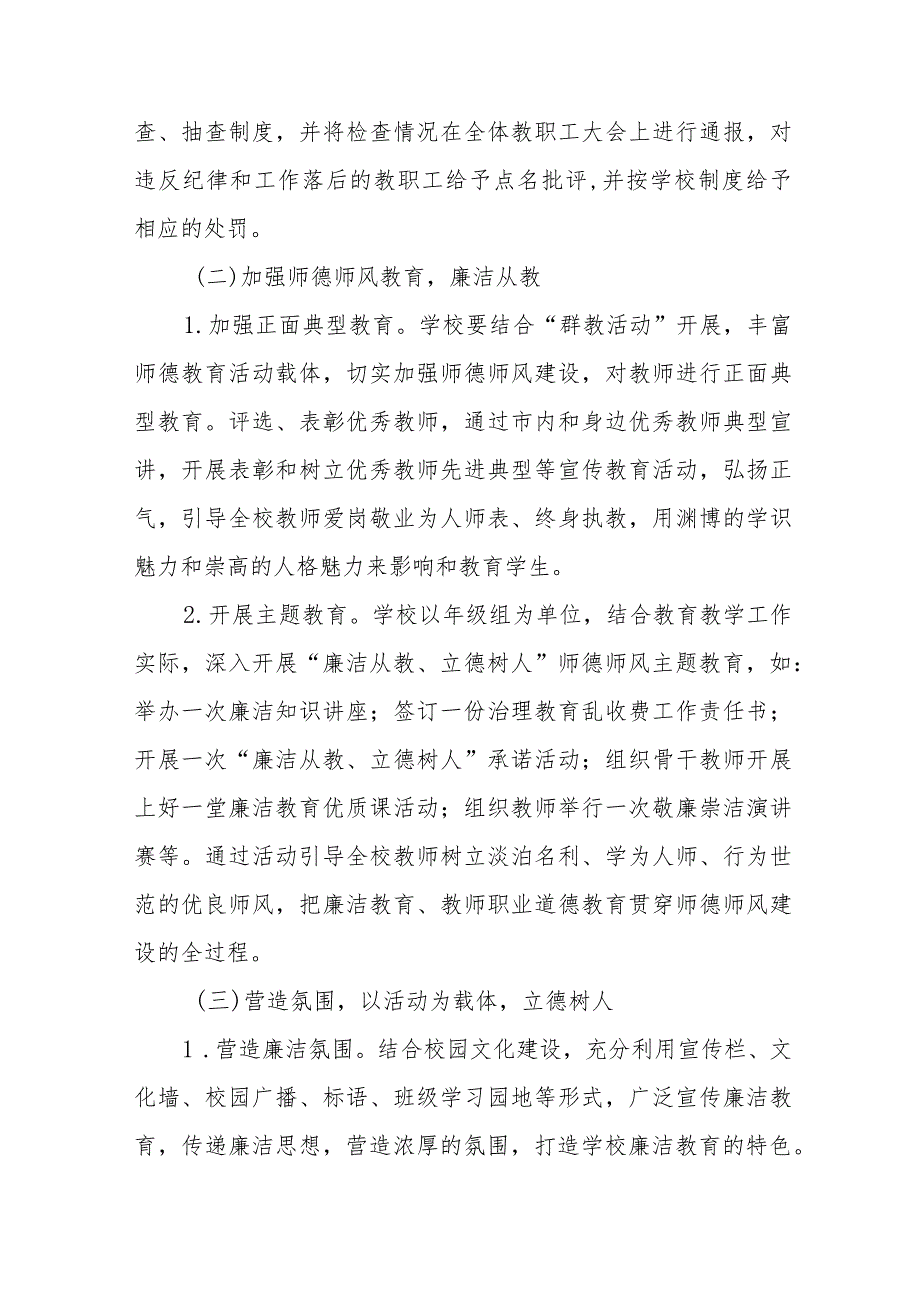 查、抽查制度，并将检查情况在全体教职工大会上进行通报，对
违反纪律和工作落后的教职工给予点名批评,并按学校制度给予
相应的处罚。
(二)加强师德师风教育，廉洁从教
1.加强正面典型教育。学校要结合“群教活动”开展，丰富
师德教育活动载体，切实加强师德师风建设，对教师进行正面典
型教育。评选、表彰优秀教师，通过市内和身边优秀教师典型宣
讲，开展表彰和树立优秀教师先进典型等宣传教育活动，弘扬正
气，引导全校教师爱岗敬业为人师表、终身执教，用渊博的学识
魅力和崇高的人格魅力来影响和教育学生。
2.开展主题教育。学校以年级组为单位，结合教育教学工作
实际，深入开展“廉洁从教、立德树人”师德师风主题教育，如：
举办一次廉洁知识讲座；签订一份治理教育乱收费工作责任书；
开展一次“廉洁从教、立德树人”承诺活动；组织骨干教师开展
上好一堂廉洁教育优质课活动；组织教师举行一次敬廉崇洁演讲
赛等。通过活动引导全校教师树立淡泊名利、学为人师、行为世
范的优良师风，把廉洁教育、教师职业道德教育贯穿师德师风建
设的全过程。
(三)营造氛围，以活动为载体，立德树人
1 .营造廉洁氛围。结合校园文化建设，充分利用宣传栏、文
化墙、校园广播、标语、班级学习园地等形式，广泛宣传廉洁教
育，传递廉洁思想，营造浓厚的氛围，打造学校廉洁教育的特色。